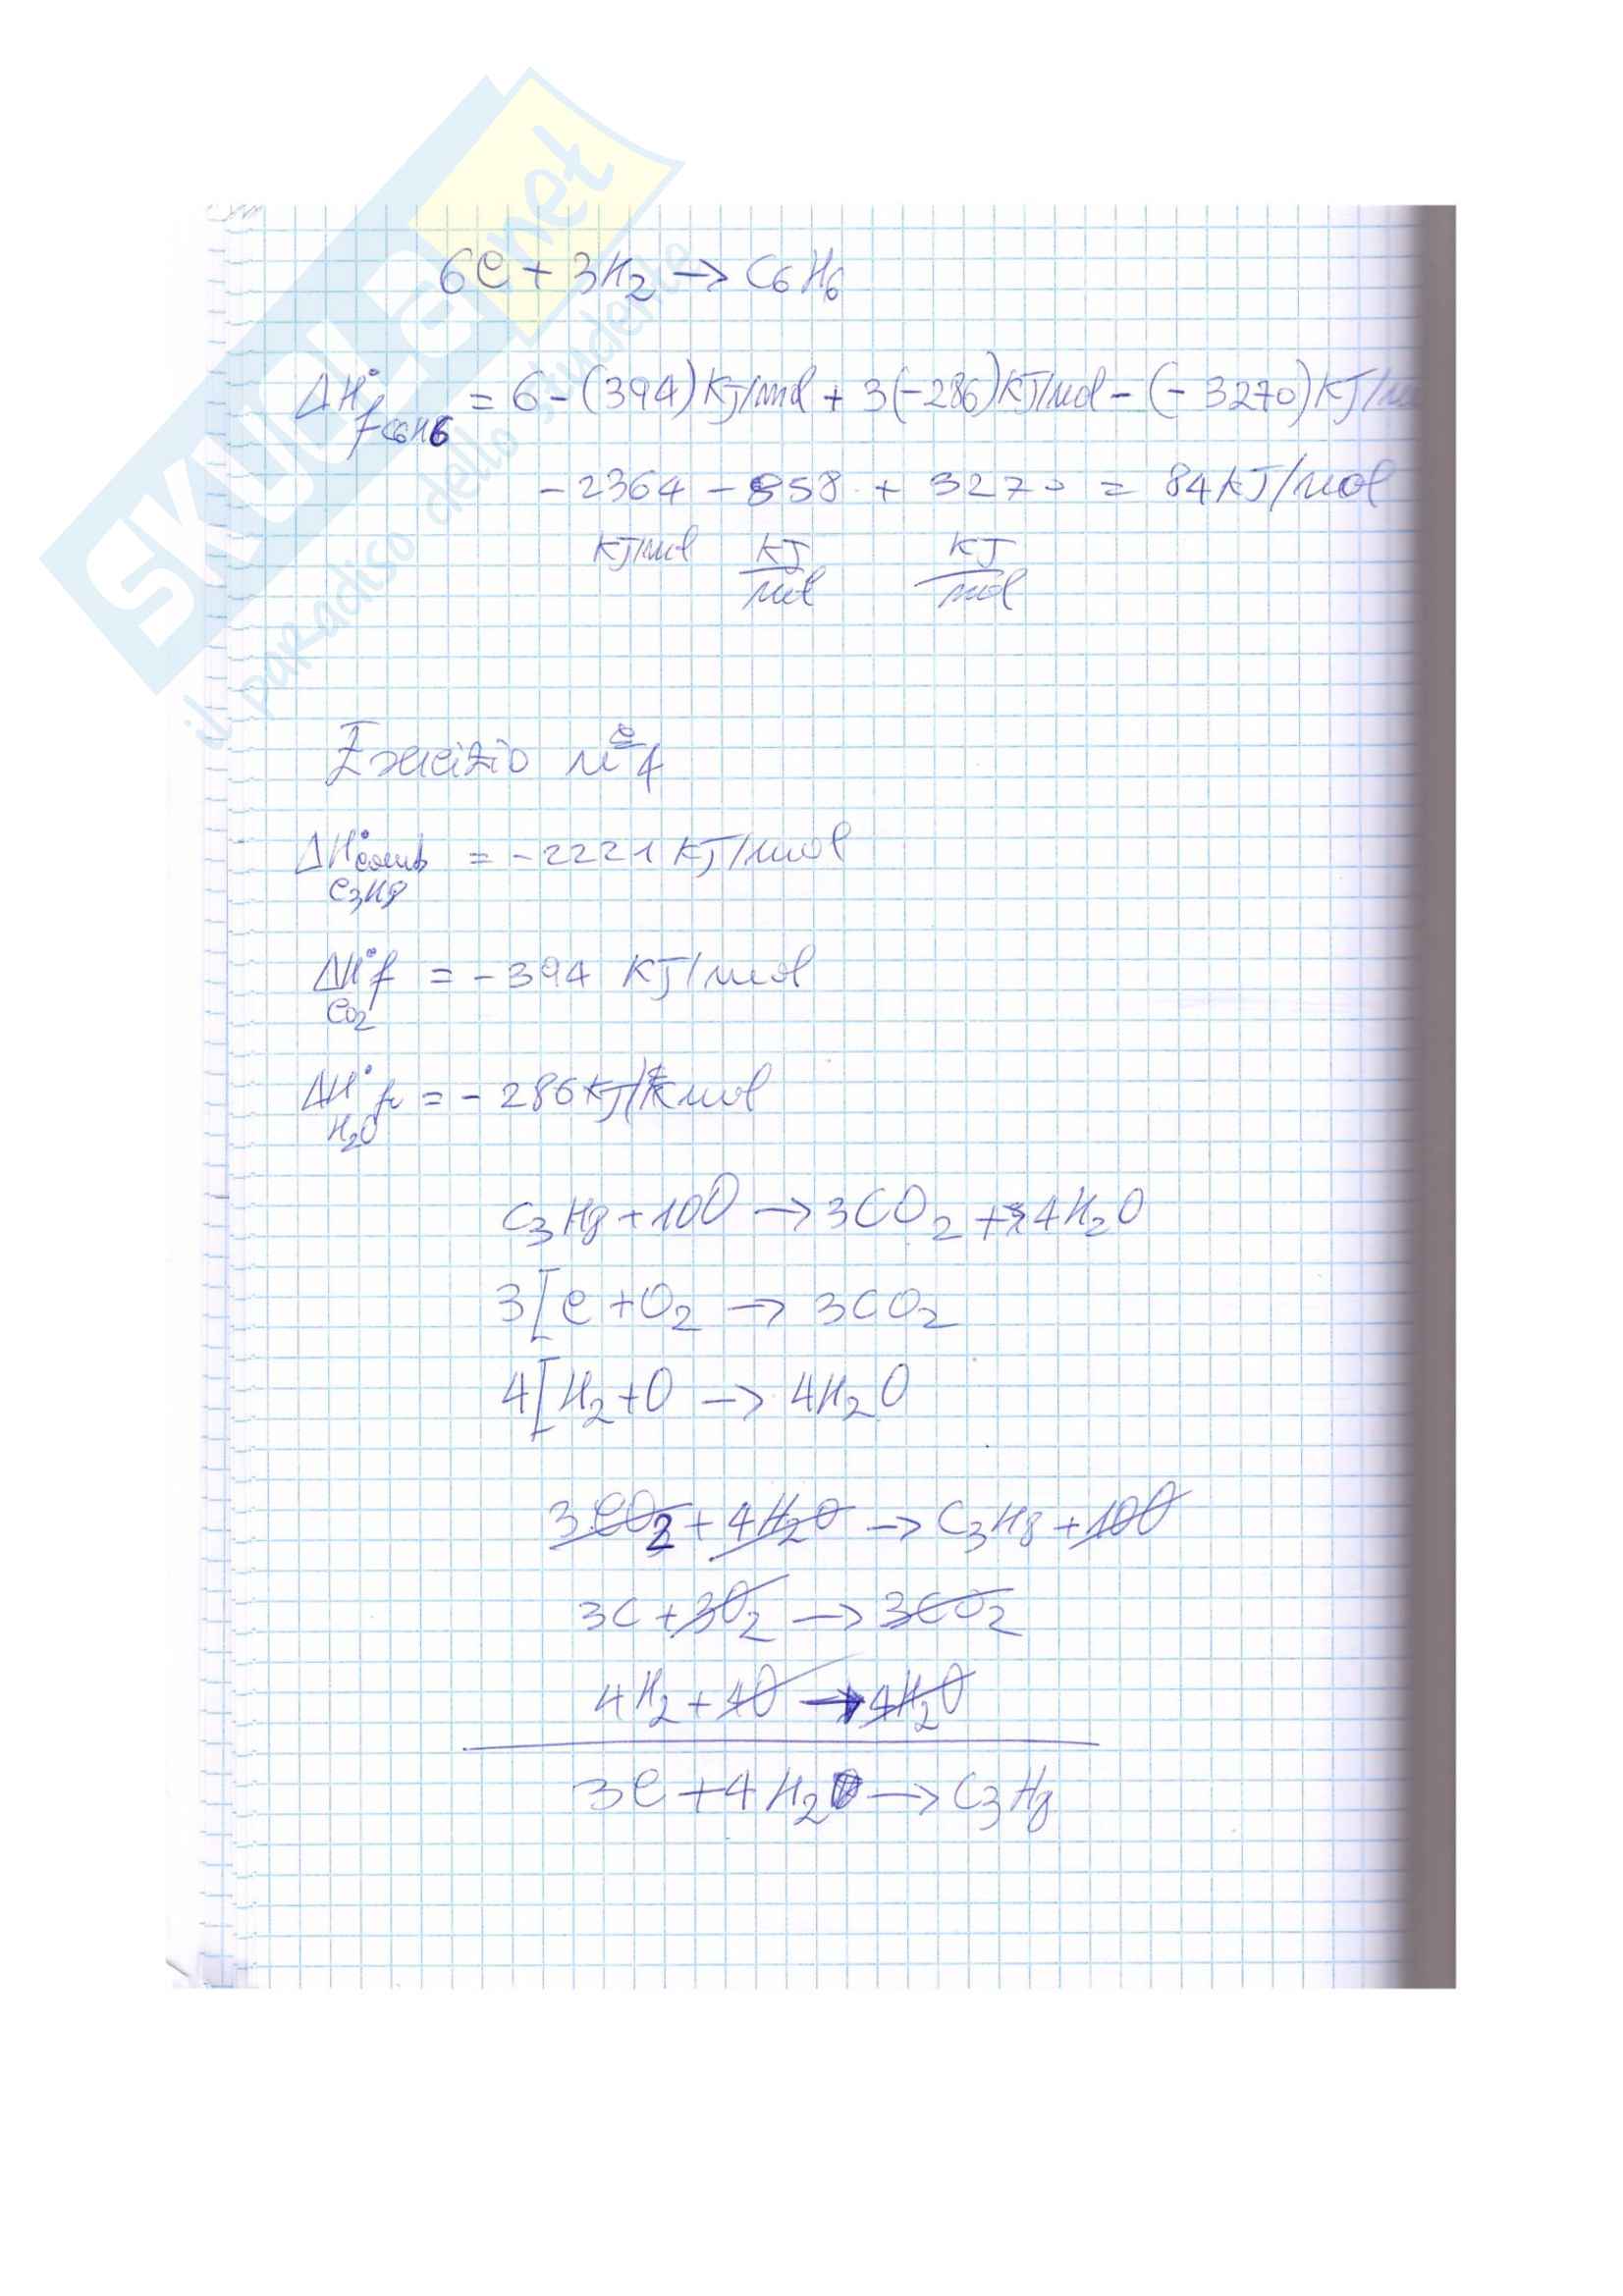 SKUOLA.net
il paradiso dello studente
6C + 3H2 → C6H6
ΔH°f C6H6 = 6-(394) KJ/mol + 3(-286) KJ/mol - (-3270) KJ/
-2364 - 858 + 3270 = 84 KJ/mol
KJ/mol KJ/mol KJ/mol
Esercizio n° 4
ΔH°comb C3H8 = -2221 KJ/mol
ΔH°f CO2 = -394 KJ/mol
ΔH°f H2O = -286 KJ/mol
C3H8 + 10O → 3CO2 + 4H2O
3[C + O2 → 3CO2
4[H2 + O → 4H2O
3CO2 + 4H2O → C3H8 + 10O
3C + 3O2 → 3CO2
4H2 + 4O → 4H2O
3C + 4H2 → C3H8